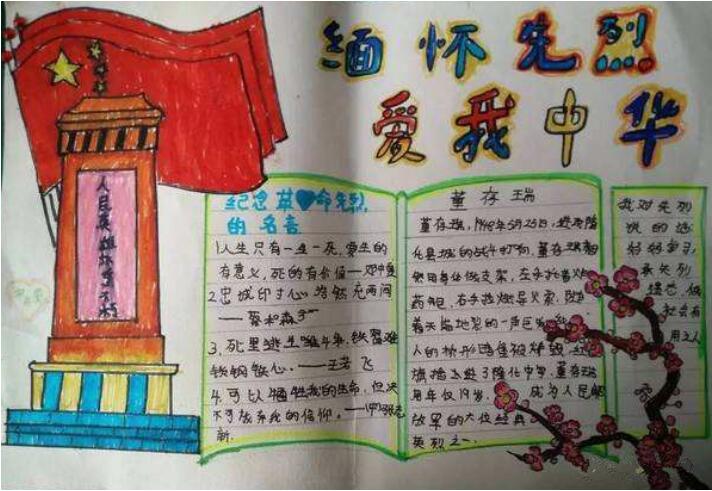 缅怀先烈
爱我中华
人民英雄永垂不朽
纪念革命先烈
的名言
1.人生只有一生一死,要生的
有意义,死的有价值——邓中夏
2.忠诚印寸心,浩然充两间
——蔡和森
3.死里逃生唯斗争,铁窗难
锁钢铁心.——王若飞
4.可以牺牲我的生命,但决
不可放弃我的信仰。——贺
新.
董存瑞
董存瑞,1948年5月25日,攻隆
化县城的战斗打响,董存瑞
用身体做支架,左手托着炸
药包,右手拉燃导火索,
着天崩地裂的一声巨
人的桥形碉堡被炸毁,红
旗插上进了隆化中学.董存瑞
年仅19岁, 成为人民解
放军的大位经典
英烈之一.
我对先烈
说的话
好好学习,
承先烈
遗志,做
社会有
用之人